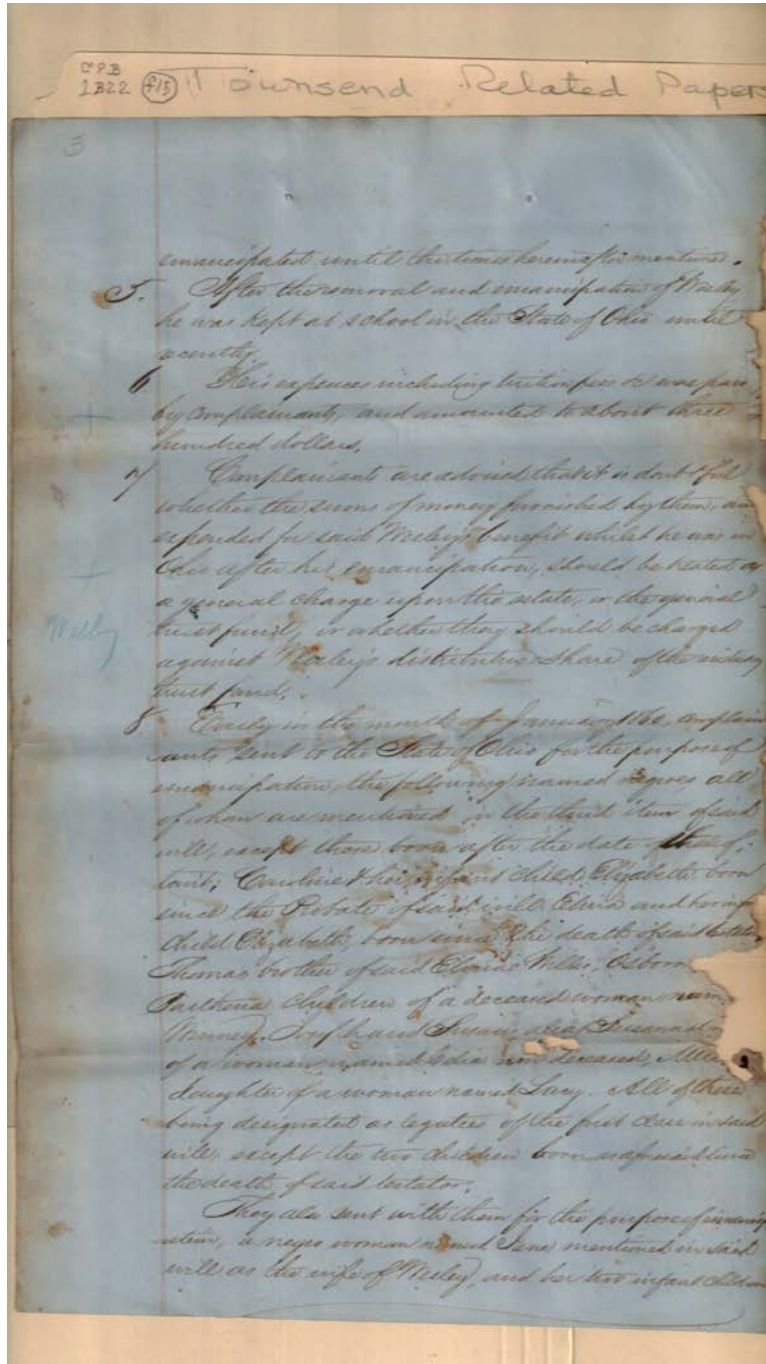 CPB
1B22 f15 Townsend Related Papers
3
emancipated until the times hereinafter mentioned.
5. After the removal and emancipation of Wesley
he was kept at school in the State of Ohio until
recently.
6 His expences including tuition fees &c was paid
by complainants, and amounted to about three
hundred dollars.
7 Complainants are advised that it is doubtful
whether the sums of money furnished by them, and
expended for said Wesley's benefit whilst he was in
Ohio after his emancipation, should be treated as
a general charge upon the estate, or the general
trust fund, or whether they should be charged
against Wesley's distributive share of the
trust fund.
8 Early in the month of January 1860, complain
ants sent to the State of Ohio for the purpose of
emancipation, the following named negroes, all
of whom are mentioned in the third item of said
will, except those born after the date thereof,
towit; Caroline & her infant child Elizabeth born
since the Probate of said will, Elvira and her inf
child Elizabeth, born since the death of said testator,
Thomas brother of said Elvira, Willis, Osborn
Parthena children of a deceased woman nam
and Susan alias Susanna
of a woman named now deceased,
daughter of a woman named Lucy. All of these
being designated as legatees of the first class in said
will, except the two children born as aforesaid since
the death of said testator.
They also sent with them for the purpose of emancip
ation, a negro woman named Jane mentioned in said
will as the wife of Wesley, and her two infant children